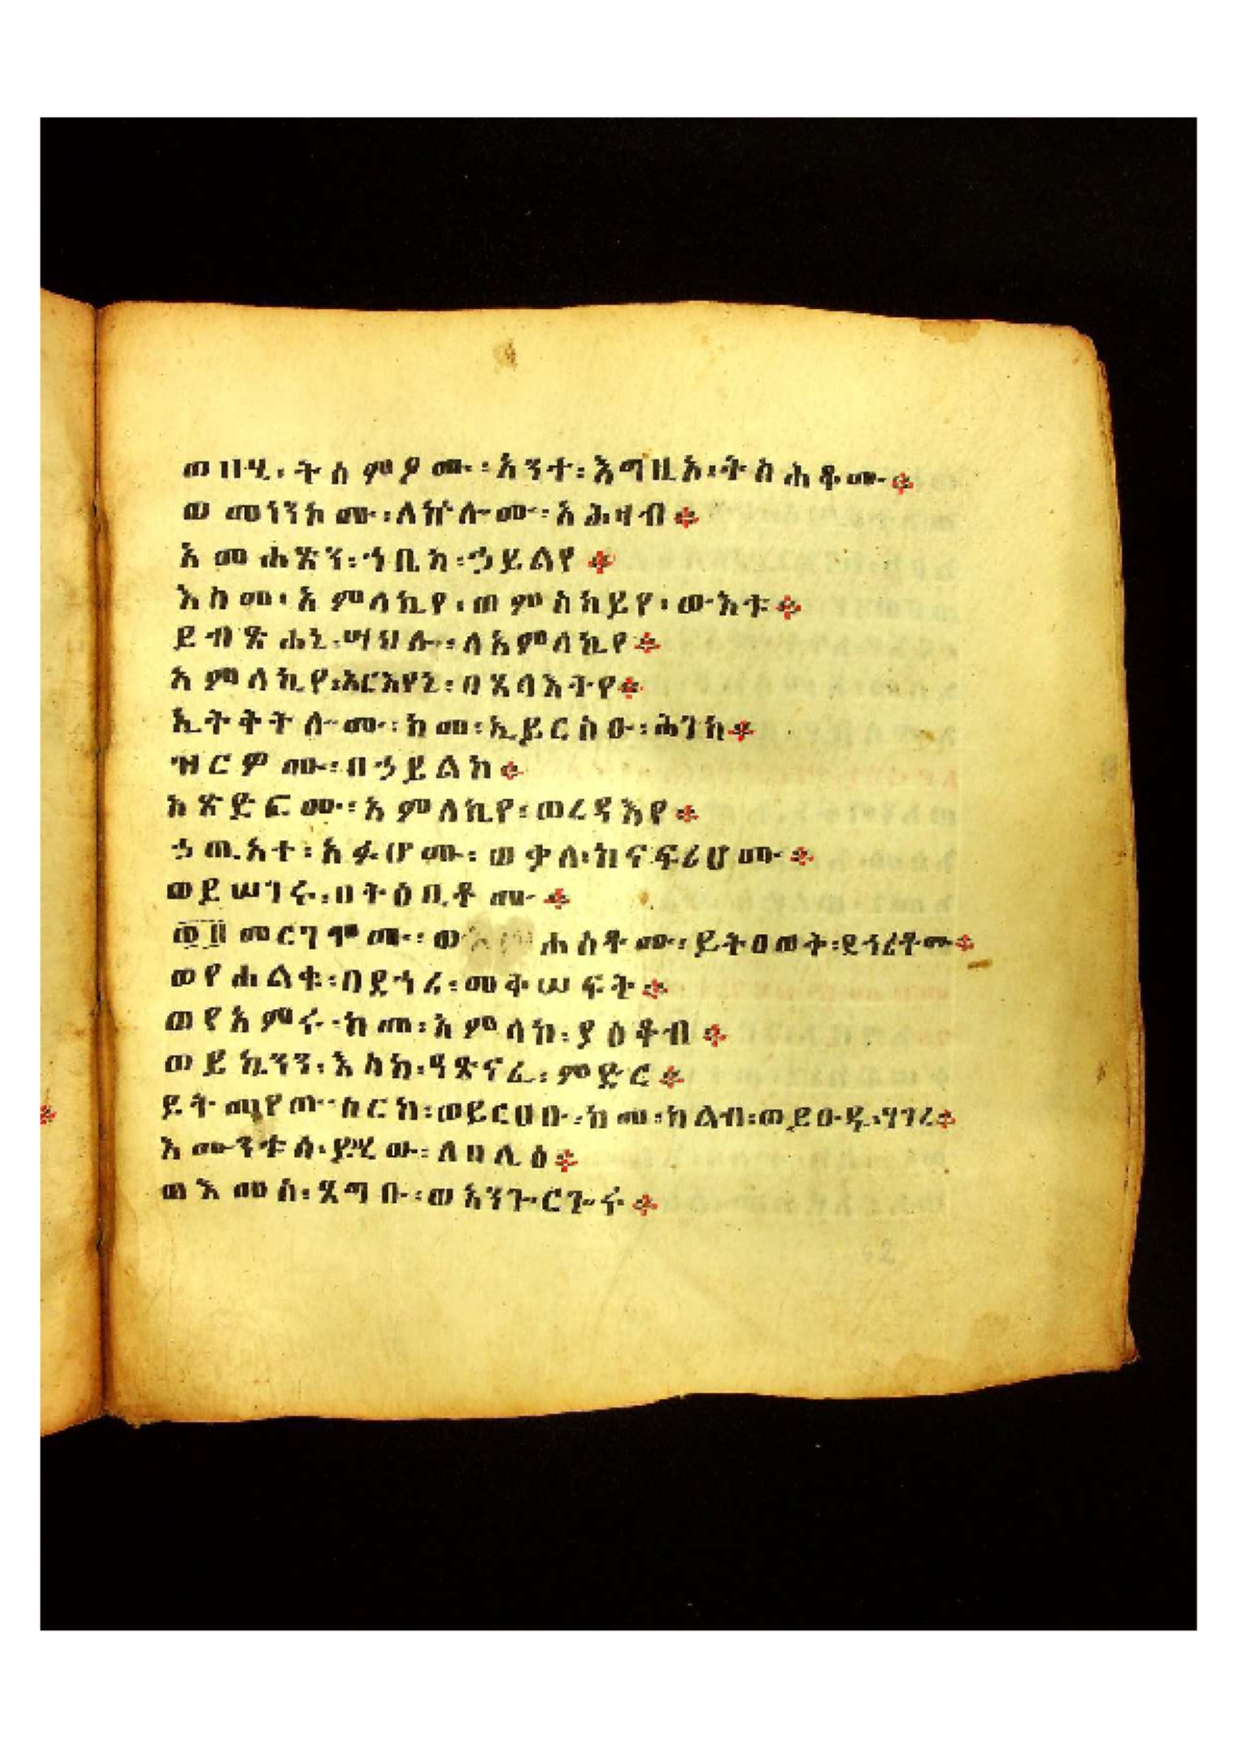 ወበሂ፡ ትስምዖሙ፡ አንተ፡ እግዚአ፡ ትስሕቆሙ።
ወመነንኮሙ፡ ለኵሎሙ፡ አሕዛብ።
አመሐጽን፡ ኀቤከ፡ ኃይልየ።
እስመ፡ አምላኪየ፡ ወምስካይየ፡ ውእቱ።
ይብጽሐኒ፡ ሣህሉ፡ ለአምላኪየ።
አምላኪየ፡ አርእየኒ፡ በጸላእትየ።
ኢትቅትሎሙ፡ ከመ፡ ኢይርስዑ፡ ሕገከ።
ዝርዎሙ፡ በኃይልከ።
አጽድፎሙ፡ አምላኪየ፡ ወረዳእየ።
ኃጢአተ፡ አፉሆሙ፡ ወቃለ፡ ከናፍሪሆሙ።
ወይሠገሩ፡ በትዕቢቶሙ።
መርገሞሙ፡ ሐሰቶሙ፡ ይትዐወቅ፡ ደኃሪቶሙ።
ወየሐልቁ፡ በደኃሪ፡ መቅሠፍት።
ወየአምሩ፡ ከመ፡ አምላከ፡ ያዕቆብ።
ወይኴንን፡ እስከ፡ ዓጽናፈ፡ ምድር።
ይትመየጡ፡ ሰርከ፡ ወይርህቡ፡ ከመ፡ ከልብ፡ ወይዑዱ፡ ሃገረ።
እሙንቱሰ፡ ይሂወ፡ ለበሊዕ።
ወእመሰ፡ ጸግቡ፡ ወአንጐርጐሩ።
62